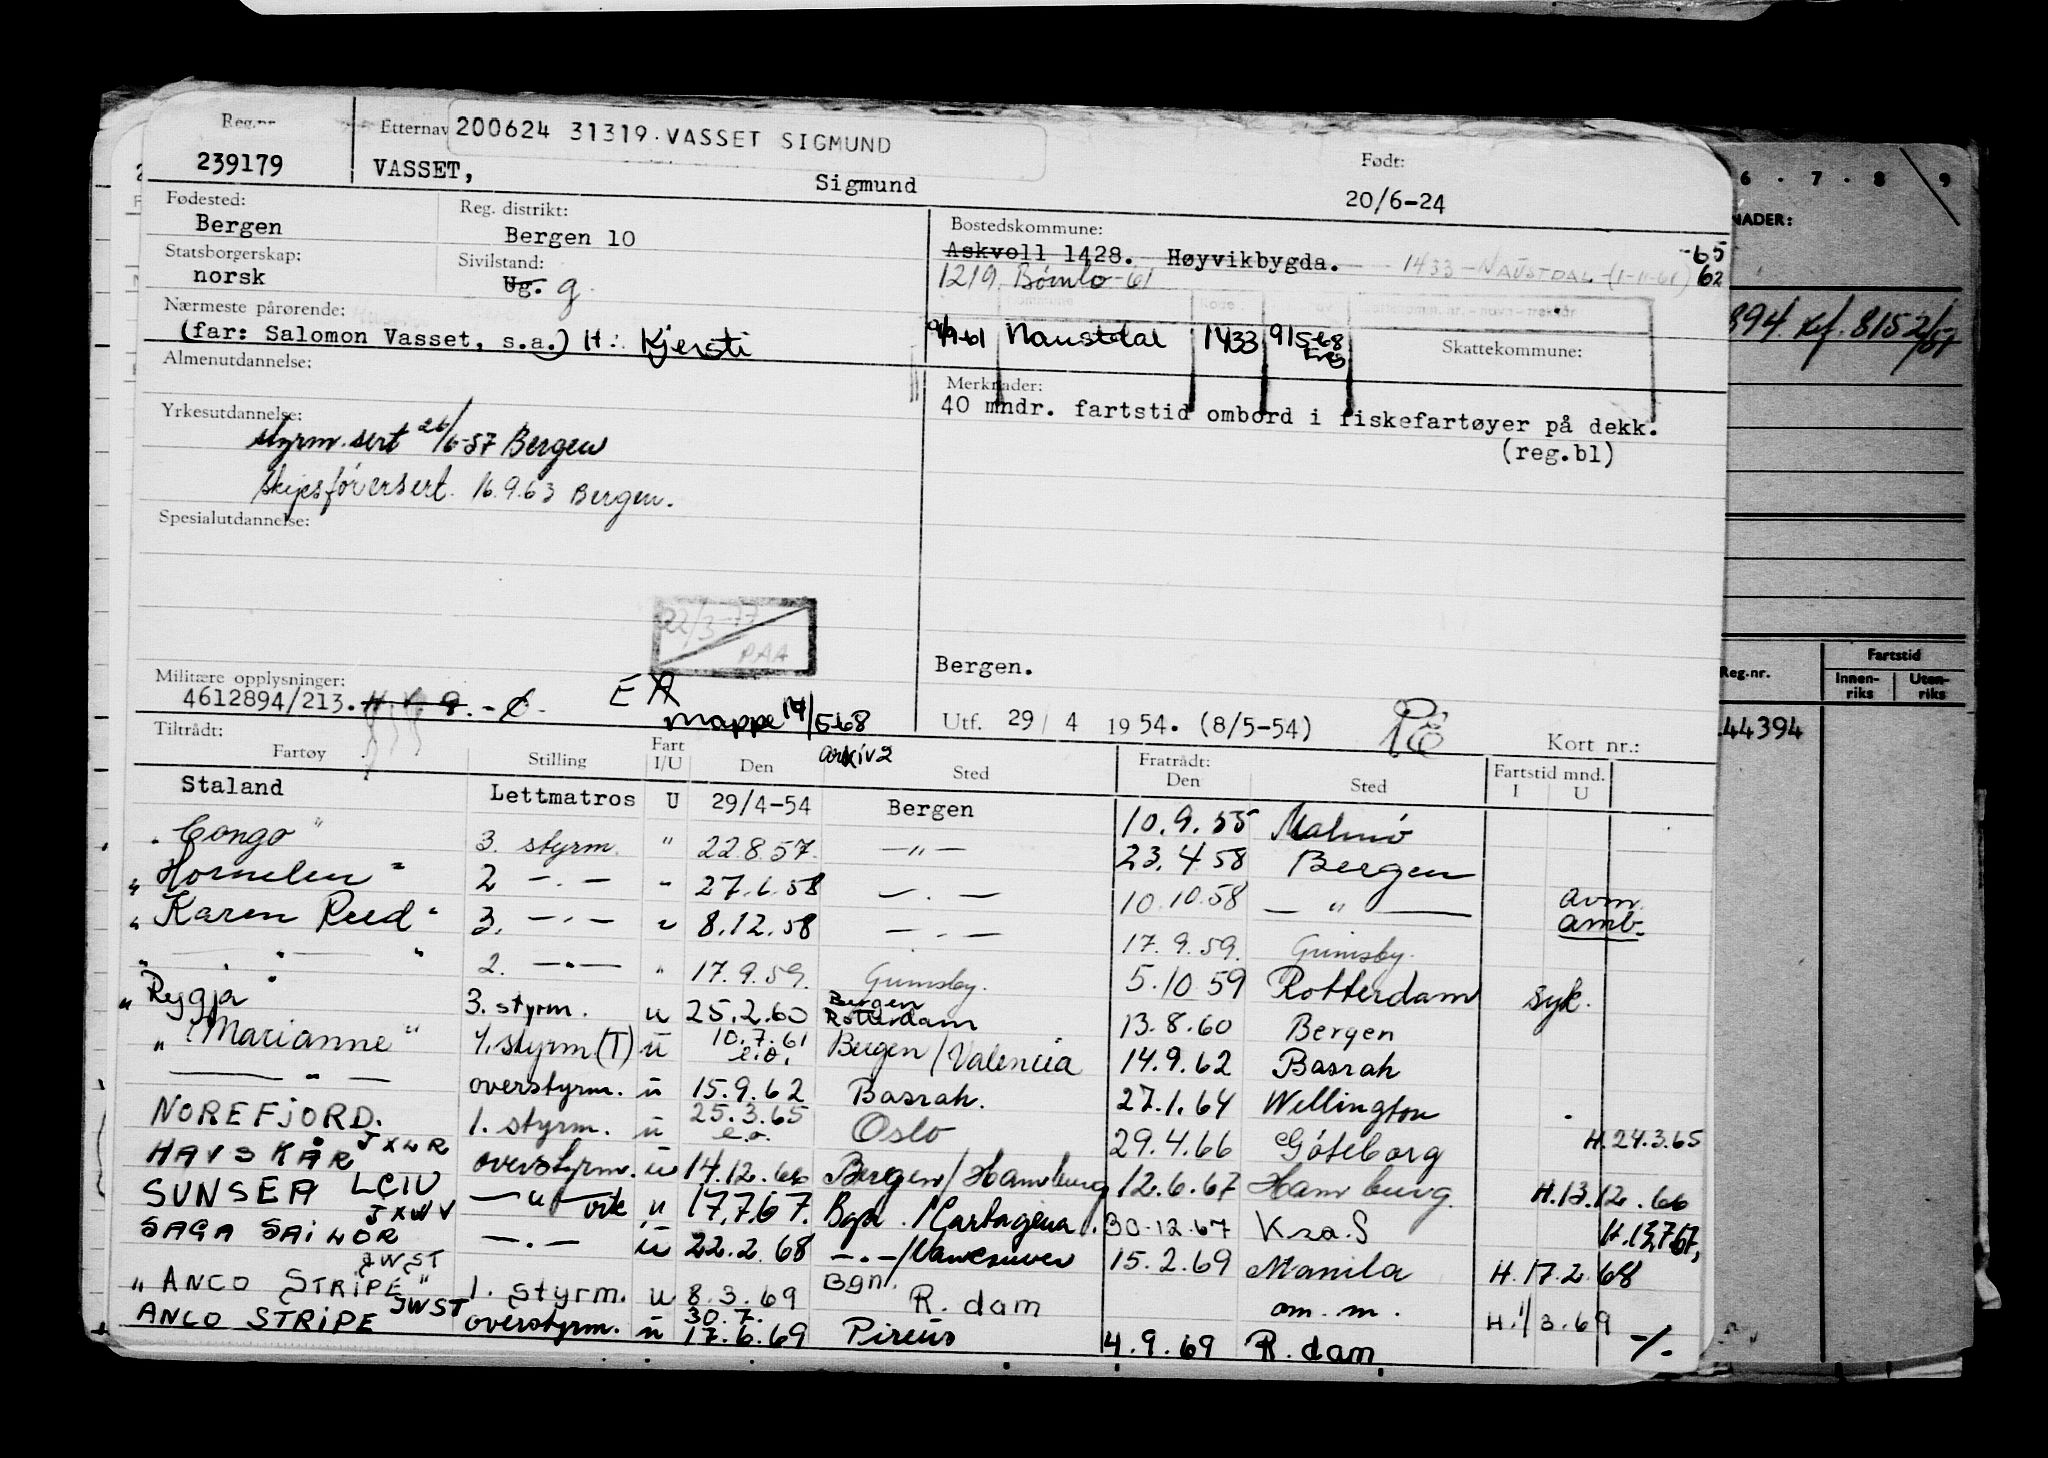 Reg.nr
Etternav 200624 31319 VASSET SIGMUND
Født:
239179
VASSET,
Sigmund
20/6-24
Fødested:
Bergen
Reg. distrikt:
Bergen 10
Bostedskommune:
Askvoll 1428. Høyvikbygda. 1433 - NAUSTDAL -(1-11-61)
-65
62
1219 Bömlo -61
Statsborgerskap:
norsk
Sivilstand:
Ug. g
Nærmeste pårørende:
(far: Salomon Vasset, s.a.) H: Kjersti
9/9-61 Naustdal 1433 9/5-68
Skattekommune:
Almenutdannelse:
Merknader:
40 mndr. fartstid ombord i fiskefartøyer på dekk.
(reg.bl)
Yrkesutdannelse:
styrm.sert 26/6-57 Bergen
skipsförersert. 16.9.63 Bergen.
Spesialutdannelse:
22/3-77
PAA
Bergen.
Militære opplysninger:
4612894/213.
Mappe 14/5-68
arkiv 2
Utf. 29/ 4 1954. (8/5-54)
Kort nr.:
Tiltrådt:
Fartøy Stilling Fart I/U Den Sted Fratrådt: Den Sted Fartstid mnd. I U
Staland Lettmatros U 29/4-54 Bergen 10.9.55 Malmö
"Congo" 3. styrm. " 22.8.57. -"- 23.4 58 Bergen
"Hornelen" 2 -"- " 27.6.58 -"- 10.10.58 -"- avm. amb.
"Karen Reed" 3. -"- " 8.12.58 -"- 17.9.59. Grimsby.
" -"- " 2. -"- " 17.9.59. Grimsby. 5.10 59 Rotterdam syk.
"Rygja" 3. styrm. u 25.2.60 Bergen Rotterdam 13.8.60 Bergen
"Marianne" 1. styrm (T) u 10.7.61 e.o. Bergen/Valencia 14.9.62 Basrah
-"- overstyrm. u 15.9.62 Basrah. 27.1.64 Wellington
NOREFJORD. 1. styrm. u 25.3.65 e.o. Oslo 29.4.66 Göteborg H.24.3.65
HAVSKÅR JXLR overstyrm. u 14.12.66 Bergen/Hamburg 12.6.67 Hamburg. H.13.12.66
SUNSEA LCIU -"- u 17.7.67. Bgn./Cartagena. 30.12.67 Kra.S H.13.7.67,
SAGA SAILOR JXWV -"- u 22.2.68 -"-/Vancouver 15.2.69 Manila H.17.2.68
"ANCO STRIPE" JWST 1. styrm. u 8.3.69 Bgn. R.dam om.m. H.1/3.69
ANCO STRIPE JWST overstyrm. u 30.7. 17.6.69 Pireus 4.9.69 R.dam -/.
6 . 7 . 8 . 9
NADER:
894. kf. 8152/57
Reg.nr.
Fartstid
Innen-riks
Uten-riks
44394